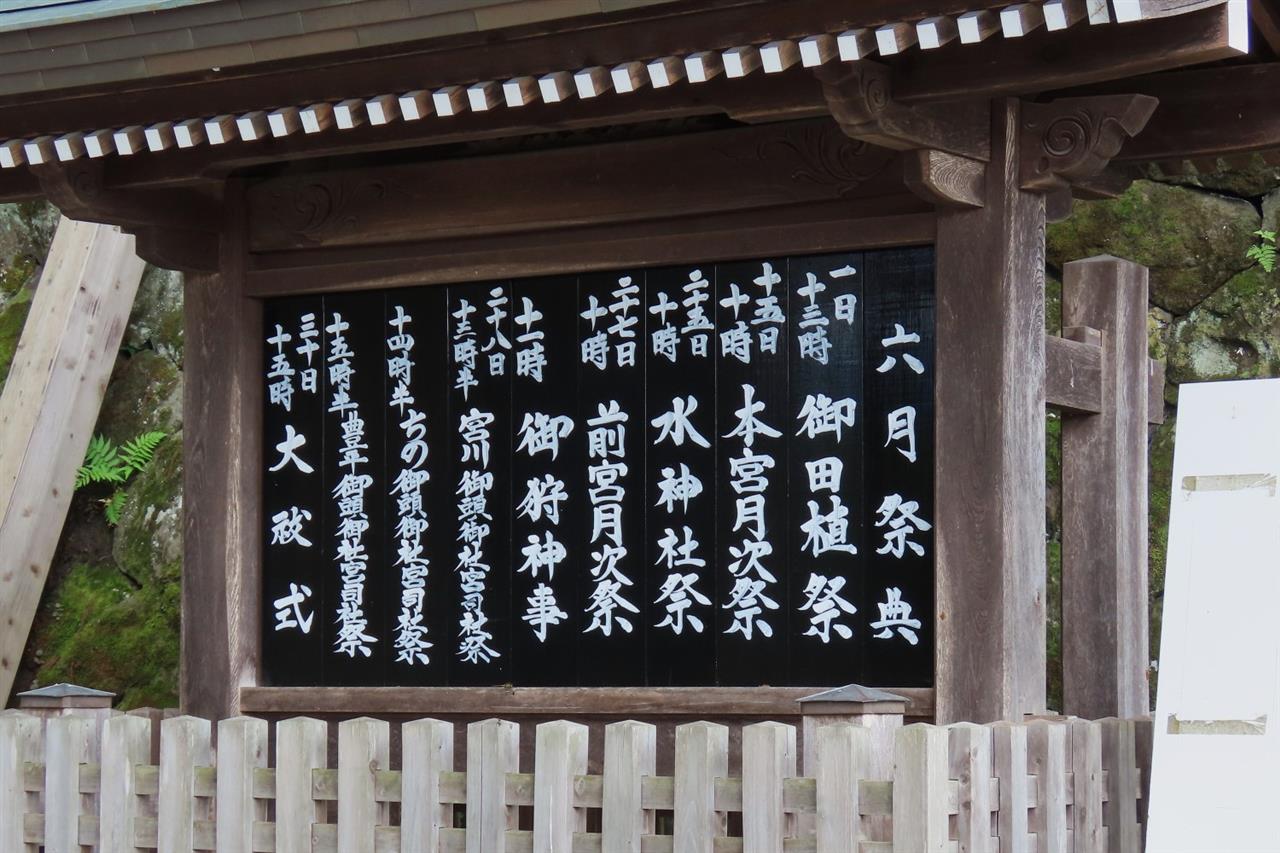 六月祭典
一日 十三時 御田植祭
十五日 十時 本宮月次祭
二十五日 十時 水神社祭
二十七日 十時 前宮月次祭
十一時 御狩神事
二十八日 十三時半 宮川御頭御社宮司社祭
十四時半 ちの御頭御社宮司社祭
十五時半 豊平御頭御社宮司社祭
三十日 十五時 大祓式